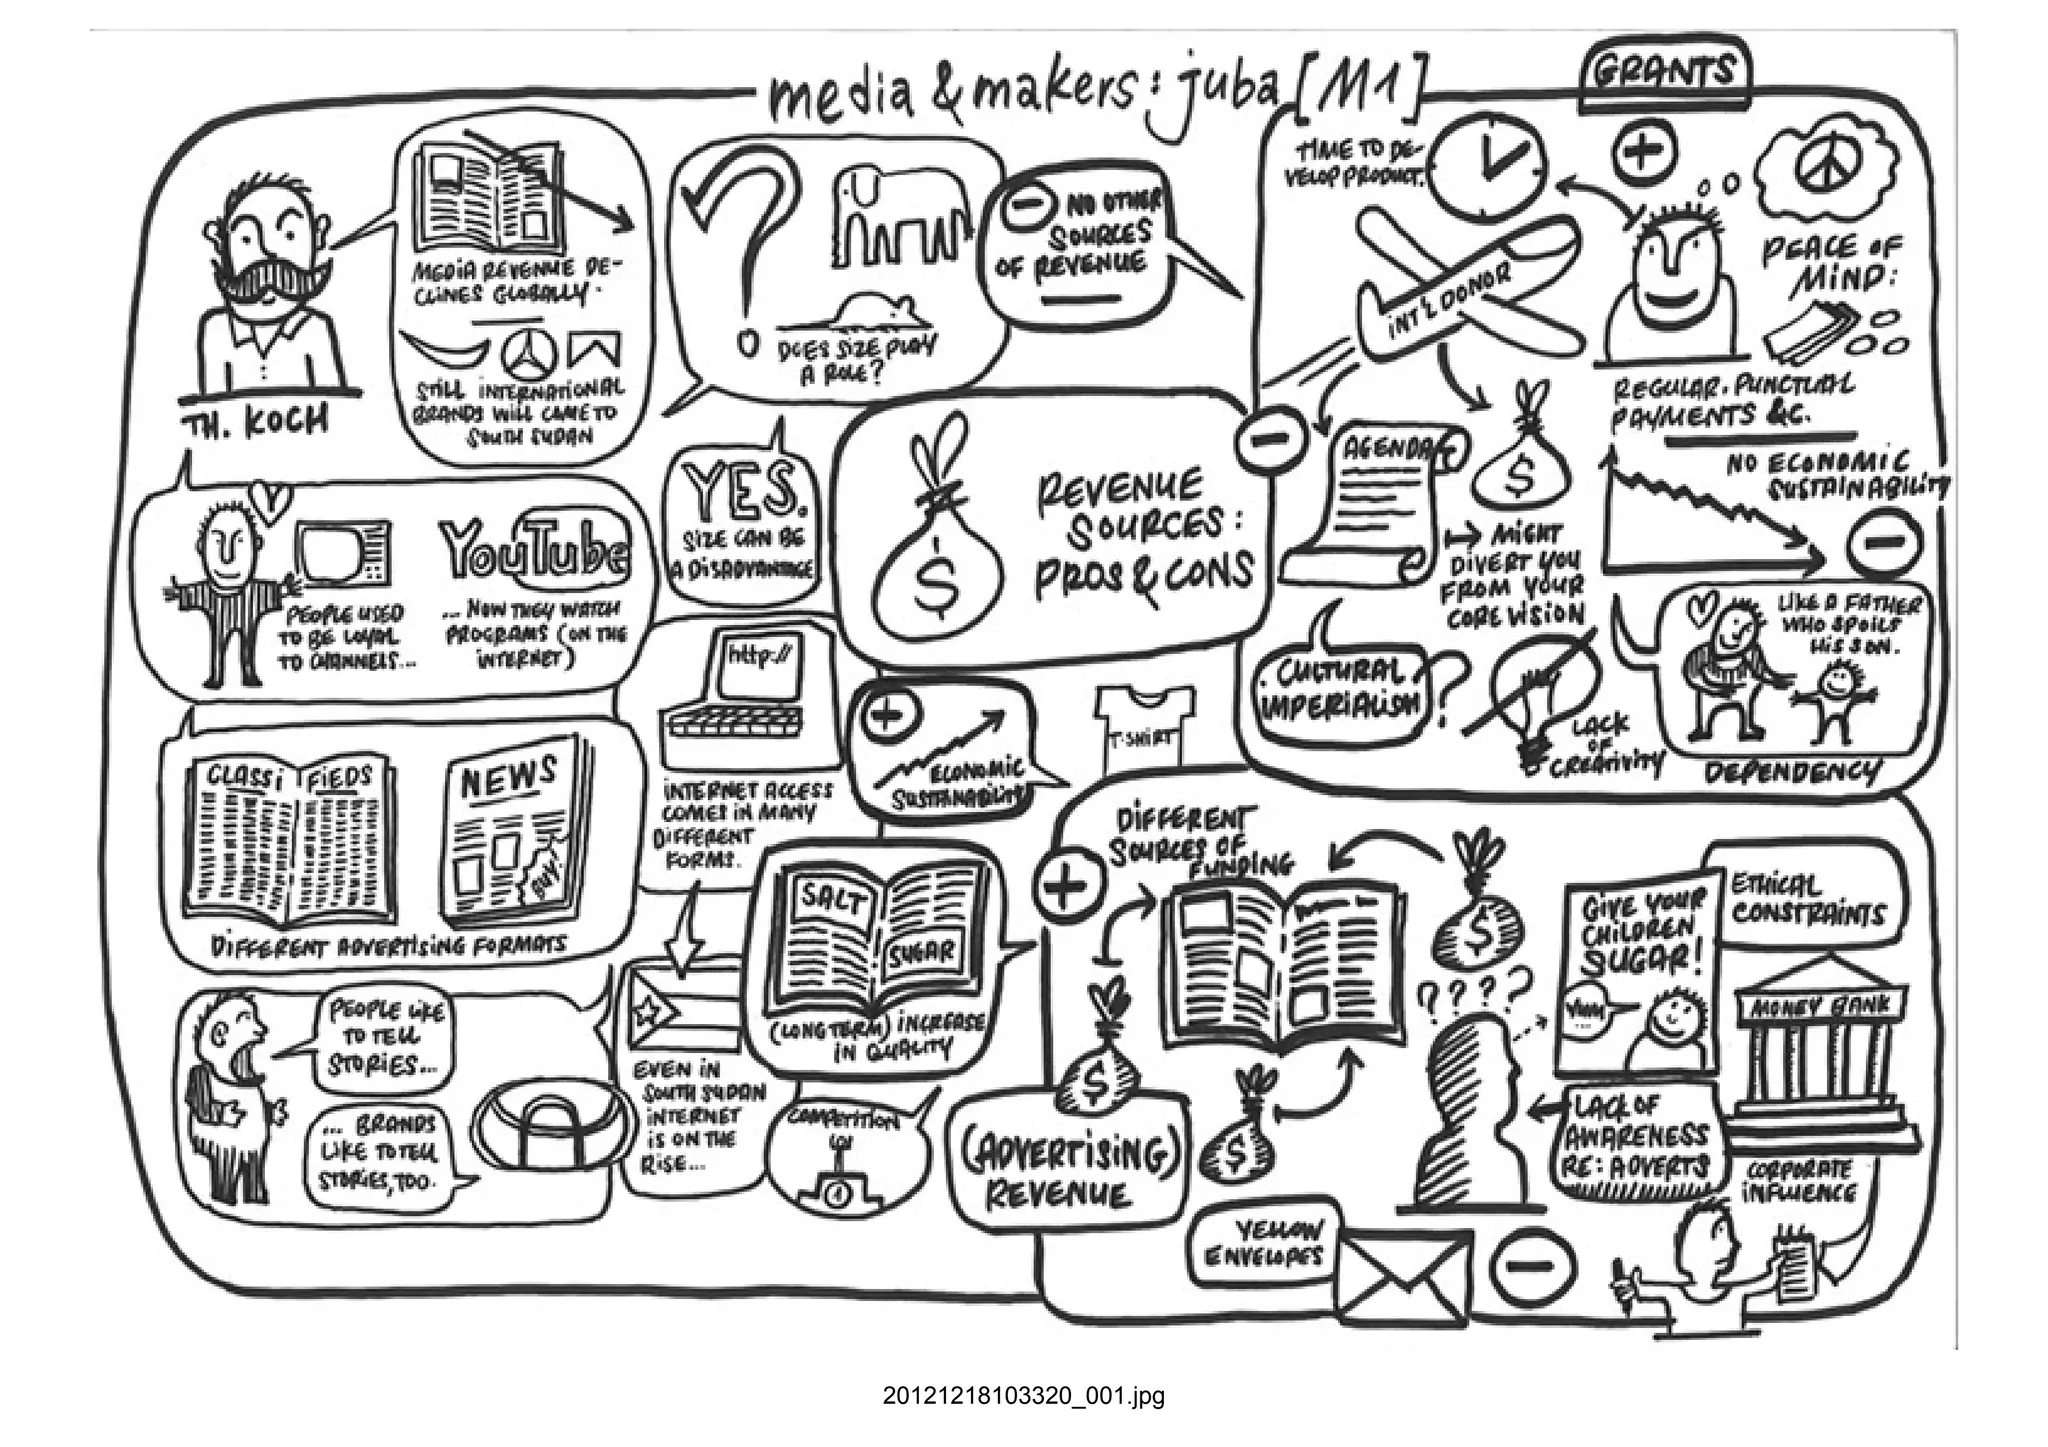 media & makers: juba [M1]
GRANTS
TH. KOCH
MEDIA REVENUE DE-
CLINES GLOBALLY.
STILL INTERNATIONAL
BRANDS WILL COME TO
SOUTH SUDAN
DOES SIZE PLAY
A ROLE?
NO OTHER
SOURCES
OF REVENUE
YES.
SIZE CAN BE
A DISADVANTAGE
PEOPLE USED
TO BE LOYAL
TO CHANNELS...
YouTube
... NOW THEY WATCH
PROGRAMS (ON THE
INTERNET)
CLASSIFIEDS
NEWS
BUY!
DIFFERENT ADVERTISING FORMATS
PEOPLE LIKE
TO TELL
STORIES...
... BRANDS
LIKE TO TELL
STORIES, TOO.
http://
INTERNET ACCESS
COMES IN MANY
DIFFERENT
FORMS.
EVEN IN
SOUTH SUDAN
INTERNET
IS ON THE
RISE...
REVENUE
SOURCES:
PROS & CONS
$
TIME TO DE-
VELOP PRODUCT.
INT'L DONOR
PEACE OF
MIND:
REGULAR, PUNCTUAL
PAYMENTS &C.
AGENDA
$
MIGHT
DIVERT YOU
FROM YOUR
CORE VISION
NO ECONOMIC
SUSTAINABILITY
CULTURAL
IMPERIALISM?
LACK
OF
CREATIVITY
LIKE A FATHER
WHO SPOILS
HIS SON.
DEPENDENCY
T-SHIRT
ECONOMIC
SUSTAINABILITY
SALT
SUGAR
(LONG TERM) INCREASE
IN QUALITY
COMPETITION
1
(ADVERTISING)
REVENUE
DIFFERENT
SOURCES OF
FUNDING
$
$
$
????
GIVE YOUR
CHILDREN
SUGAR!
ETHICAL
CONSTRAINTS
MONEY BANK
LACK OF
AWARENESS
RE: ADVERTS
CORPORATE
INFLUENCE
YELLOW
ENVELOPES
20121218103320_001.jpg